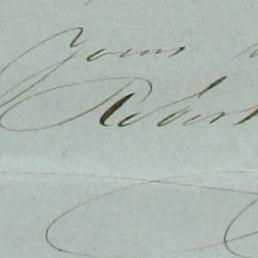 Yours
Robert